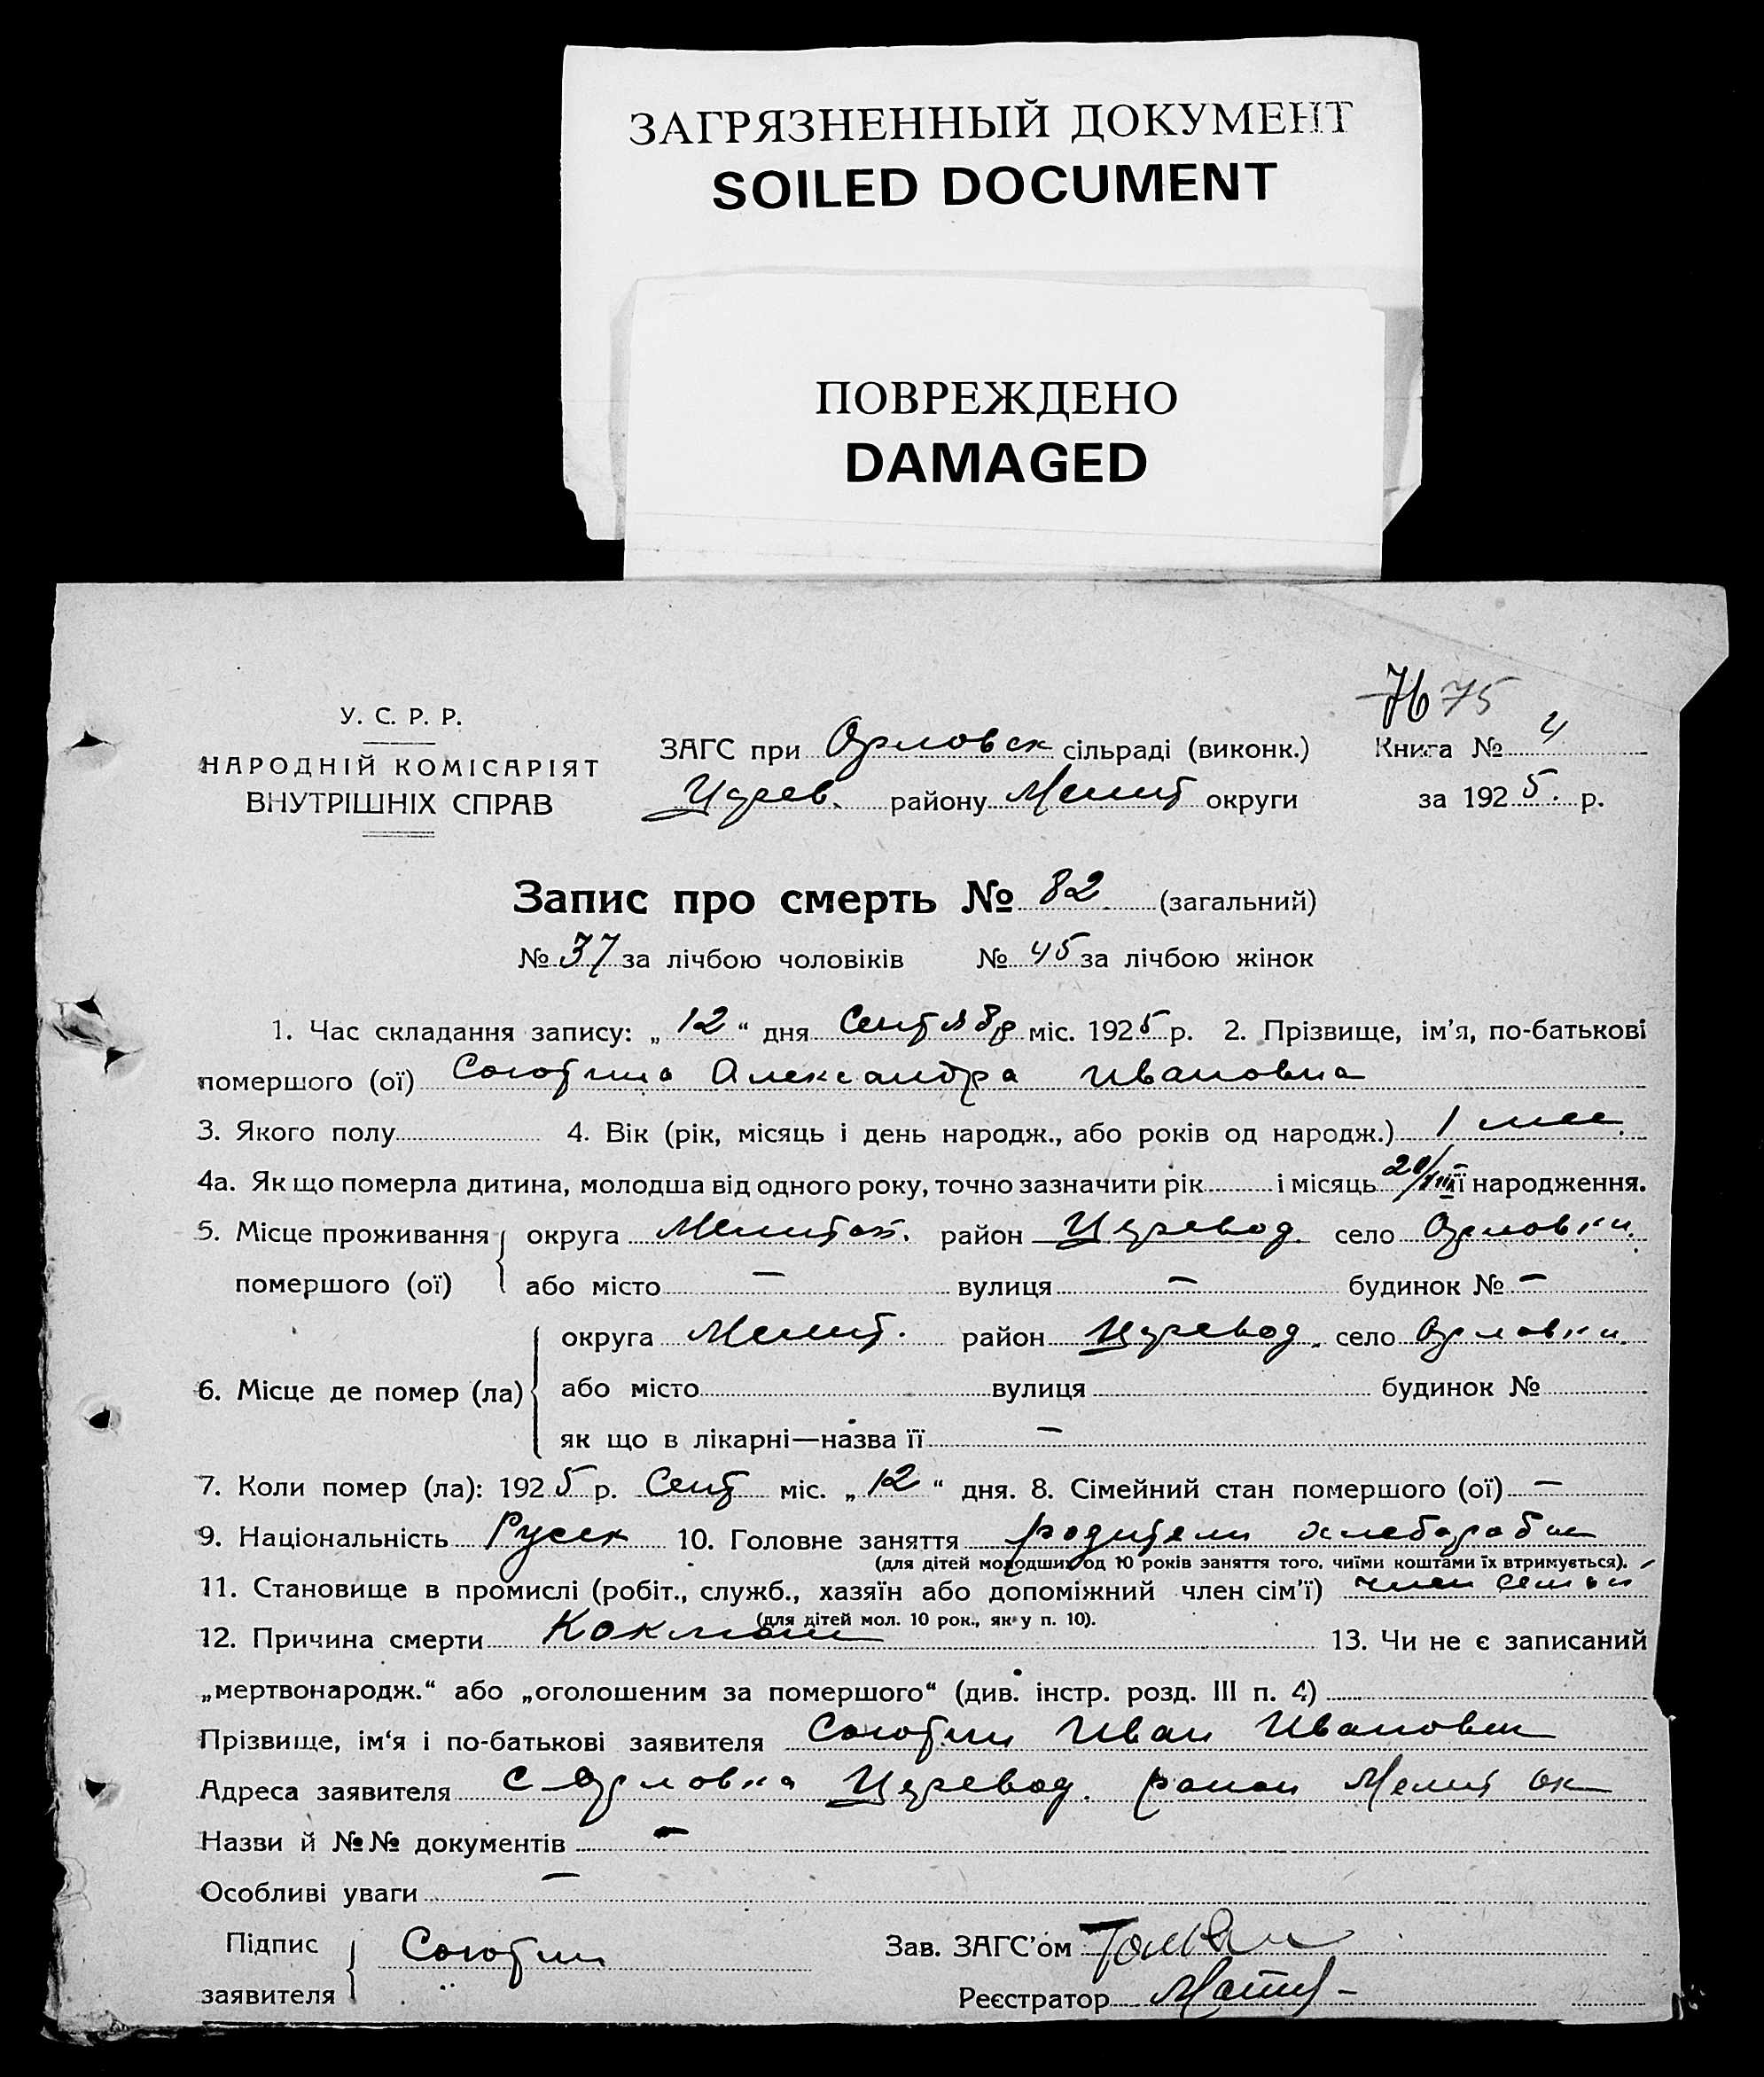 ЗАГРЯЗНЕННЫЙ ДОКУМЕНТ
SOILED DOCUMENT
ПОВРЕЖДЕНО
DAMAGED
76 75
У. С. Р. Р.
НАРОДНІЙ КОМІСАРІЯТ
ВНУТРІШНІХ СПРАВ
ЗАГС при Орловск сільраді (виконк.) Книга № 4
Царев. району Мелит округи за 1925. р.
Запис про смерть № 82 (загальний)
№ 37 за лічбою чоловіків № 45 за лічбою жінок
1. Час складання запису: „12“ дня Сентябр міс. 1925 р. 2. Прізвище, ім'я, по-батькові
помершого (ої) Ивановна Александра
3. Якого полу 4. Вік (рік, місяць і день народж., або років од народж.) 1 мес.
4а. Як що померла дитина, молодша від одного року, точно зазначити рік і місяць її народження.
5. Місце проживання округа Мелитоп. район Царевод. село Орловки.
помершого (ої) або місто — вулиця — будинок № —
округа Мелит. район Царевод. село Орловки.
6. Місце де помер (ла) або місто вулиця будинок №
як що в лікарні—назва її —
7. Коли помер (ла): 1925 р. Сент міс. „12“ дня. 8. Сімейний стан помершого (ої) —
9. Національність Русск 10. Головне заняття родители хлебороби
(для дітей молодших од 10 років заняття того, чиїми коштами їх втримується).
11. Становище в промислі (робіт., служб., хазяїн або допоміжний член сім'ї) член семьи
(для дітей мол. 10 рок., як у п. 10).
12. Причина смерти Коклюш 13. Чи не є записаний
„мертвонародж.“ або „оголошеним за помершого“ (див. інстр. розд. III п. 4)
Прізвище, ім'я і по-батькові заявителя Иван Иванович
Адреса заявителя С Орловка Царевод. район Мелит ок
Назви й №№ документів —
Особливі уваги —
Підпис
заявителя
Зав. ЗАГС'ом
Реєстратор